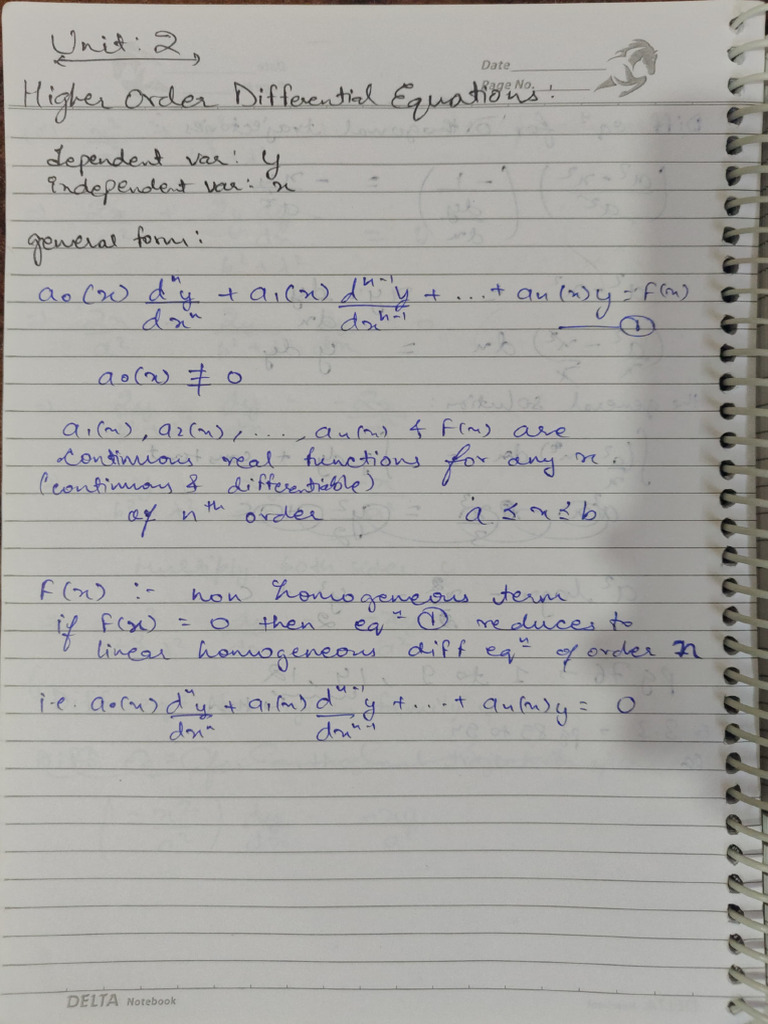 Unit: 2
Date
Page No.
Higher Order Differential Equations:
Dependent var: y
Independent var: x
general form:
a₀(x) dⁿy/dxⁿ + a₁(x) dⁿ⁻¹y/dxⁿ⁻¹ + ... + aₙ(x)y = F(x)
①
a₀(x) ≢ 0
a₁(x), a₂(x), ..., aₙ(x) & F(x) are
continuous real functions for any x.
(continuous & differentiable)
of nᵗʰ order a ≤ x ≤ b
F(x) :- non homogeneous term
if F(x) = 0 then eqⁿ ① reduces to
linear homogeneous diff eqⁿ of order n
i.e. a₀(x) dⁿy/dxⁿ + a₁(x) dⁿ⁻¹y/dxⁿ⁻¹ + ... + aₙ(x)y = 0
DELTA Notebook